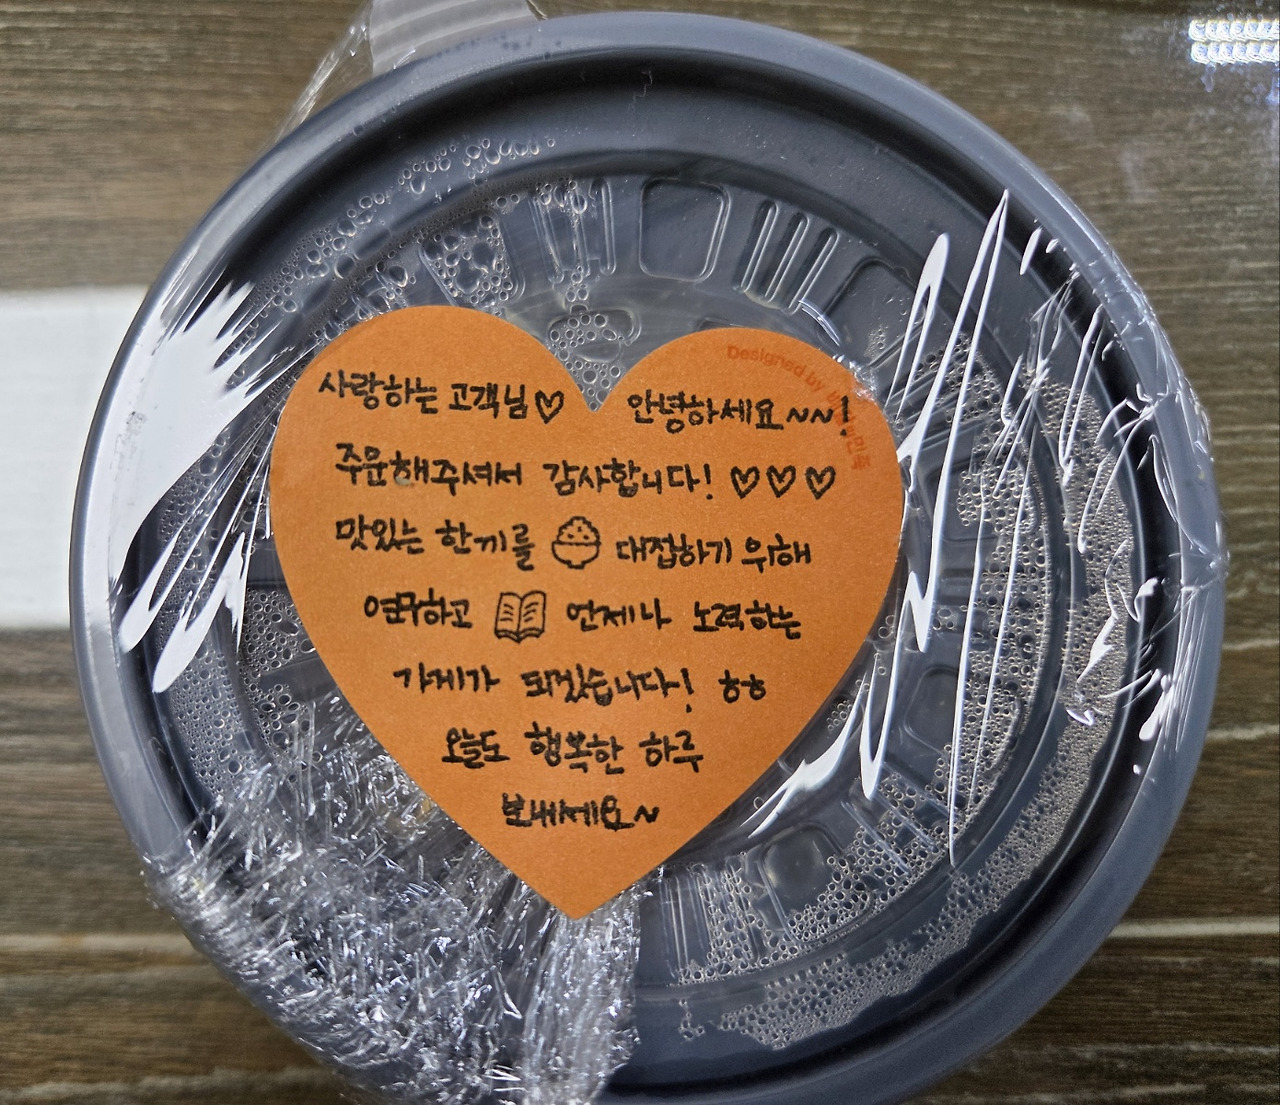 Designed by 배달의민족
사랑하는 고객님♡ 안녕하세요~~!
주문해주셔서 감사합니다! ♡♡♡
맛있는 한끼를 대접하기 위해
연구하고 언제나 노력하는
가게가 되겠습니다! ㅎㅎ
오늘도 행복한 하루
보내세요~